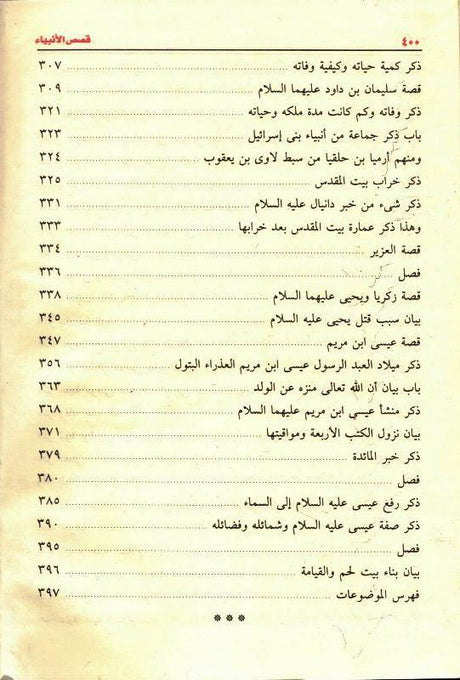 ٤٠٠ قصص الأنبياء
ذكر كمية حياته وكيفية وفاته ٣٠٧
قصة سليمان بن داود عليهما السلام ٣٠٩
ذكر وفاته وكم كانت مدة ملكه وحياته ٣٢١
باب ذكر جماعة من أنبياء بنى إسرائيل ٣٢٣
ومنهم أرميا بن حلقيا من سبط لاوى بن يعقوب ٣٢٤
ذكر خراب بيت المقدس ٣٢٥
ذكر شىء من خبر دانيال عليه السلام ٣٣١
وهذا ذكر عمارة بيت المقدس بعد خرابها ٣٣٣
قصة العزير ٣٣٤
فصل ٣٣٦
قصة زكريا ويحيى عليهما السلام ٣٣٨
بيان سبب قتل يحيى عليه السلام ٣٤٥
قصة عيسى ابن مريم ٣٤٧
ذكر ميلاد العبد الرسول عيسى ابن مريم العذراء البتول ٣٥٦
باب بيان أن الله تعالى منزه عن الولد ٣٦٣
ذكر منشأ عيسى ابن مريم عليهما السلام ٣٦٨
بيان نزول الكتب الأربعة ومواقيتها ٣٧١
ذكر خبر المائدة ٣٧٩
فصل ٣٨٠
ذكر رفع عيسى عليه السلام إلى السماء ٣٨٥
ذكر صفة عيسى عليه السلام وشمائله وفضائله ٣٩٠
فصل ٣٩٥
بيان بناء بيت لحم والقيامة ٣٩٦
فهرس الموضوعات ٣٩٧